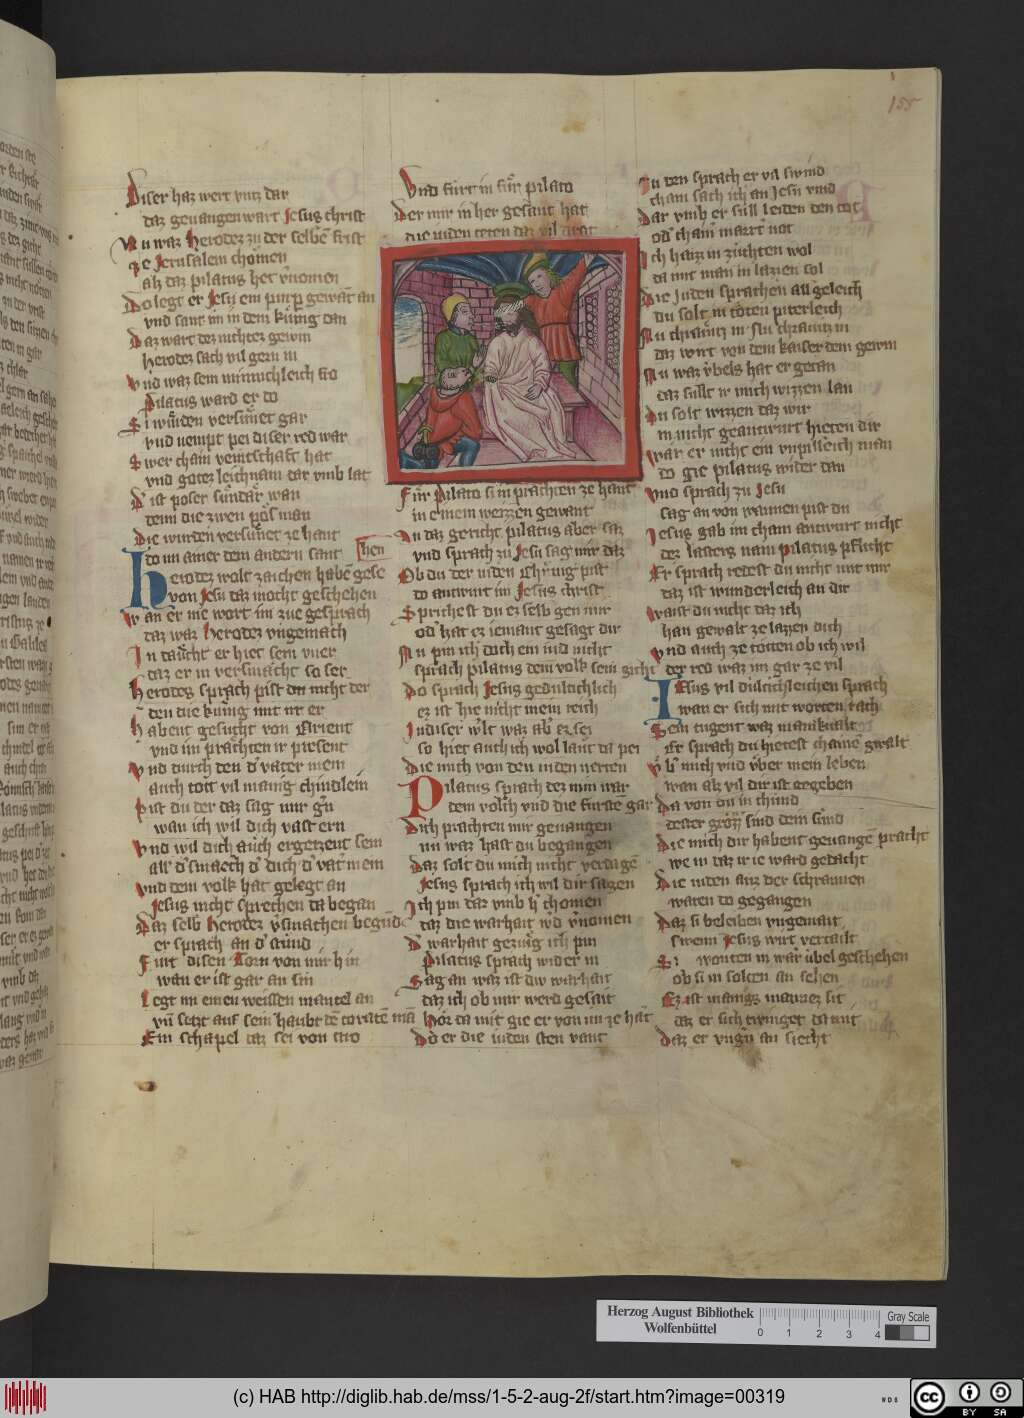 155
Diser haz wert vntz dar
daz geuangen wart Jesus christ
Nu waz Herodez zu der selbē frist
ze Jerusalem chomen
alz daz pilatus het v̓nomen
Do legt er Jesu ein purp̲ gewāt an
vnd sant in in dem küng dan
Daz wart dez nichtez gewin
herodez sach vil gern in
vnd waz sein minnichleich fro
Pilatus ward er do
Si wůrden versůnet gar
vnd nempt pei diser red war
Swer cham veintschaft hat
vnd gotez leichnam dar vmb lat
D̓ ist poser sündär wan
denn die zwen pös man
Die wurden versůnet ze hant
do im ainer dem andern sant
Herodez wolt zaichen habē gese hen
von Jesu daz mocht geschehen
wan er nie wort im zue gesprach
daz waz Herodez vngemach
In daucht er hiet sein vner
daz er in versmacht so ser
Herodes sprach pist du nicht der
den die küng mit ir er
habent gesucht von Orient
vnd im prachten ir present
vnd durch den d̓ vater mein
auch tott vil manig chindlein
Pist du der daz sag mir gn̄
wan ich wil dich vast ern
vnd wil dich auch ergetzent sein
all d̓ smaech d̓ dich d̓ vat̓ mein
vnd dem volk hat gelegt an
Jesus nicht sprechen da began
Daz selb Herodez v̓smachen begūd
er sprach an d̓ stund
Furt disen Torn von mir hin
wan er ist gar an sin
Legt im einen weissen mantel an
vn̄ setzt auf sein haubt dē toratē mā
Ein schapel daz sei von stro
Vnd fürt in für pilato
Der mir in her gesant hat
die iuden teten daz vil drat
Für Pilato si in prachten ze hant
in einem weizzen gewant
An daz gericht pilatus aber saz
vnd sprach zu Jesu sag mir daz
Ob du der iuden Chünig pist
do antwurt im Jesus christ
Sprichest du ez selb gen mir
od̓ hat ez iemant gesagt dir
Nu pin ich doch ein iud nicht
sprach pilatus dem volk sein gicht
Do sprach Jesus gedultichlich
ez ist hie nicht mein reich
In diser w̓lt waz ab̓ ez sei
so hiet auch ich wol laut da pei
Die mich von den iuden nerten
Pilatus sprach dez nim war
dem volch vnd die fürstē gar
Dich prachten mir geuangen
nu waz hast du begangen
Daz solt du mich nicht verdagē
Jesus sprach ich wil dir sagen
Ich pin dar vmb h̓ chomen
daz die warhait w̓d v̓nomen
D̓ warhait gezüg ich pin
Pilatus sprach wider in
Sag an waz ist diw warhait
daz ich ob mir werd gesait
Hör da mit gie er von im ze hāt
Do er die iuden sten vant
Zu den sprach er vil swind
cham sach ich an Jesu vind
Dar vmb er süll leiden den tot
od̓ cham mart not
Ich haiz in züchten wol
da mit man in lazzen sol
Die Juden sprachen all geleich
du solt in töten piterleich
Nu chräutz in nu chrautz in
daz wirt von dem kaiser dem gewin
Nu waz v̈bels hat er getan
daz süllt ir mich wizzen lan
Du solt wizzen daz wir
in nicht geantwurt hieten dir
wär er nicht ein vnpilleich man
do gie pilatus wider dan
vnd sprach zu Jesu
sag an von wannen pist du
Jesus gab im cham antwurt nicht
dez lasters nam pilatus pflicht
Er sprach redest du nicht mit mir
daz ist wunderleich an dir
waist du nicht daz ich
han gewalt ze lazzen dich
vnd auch ze tötten ob ich wil
der red waz im gar ze vil
Jesus vil dultichleichen sprach
wan er sich mit worten rach
Sein tugent waz manikualt
Er sprach du hietest chainē gwalt
V̈b̓ mich vnd v̈ber mein leben
wan alz vil dir ist gegeben
Da von du in chund
dester grözz̓ sind dein sünd
Die mich dir habent geuangē pracht
we in daz ir ie ward gedacht
Die iuden auz der schrannen
waren do gegangen
Daz si beleiben vngemait
swenn Jesus wirt vertailt
Si wonten in wär übel geschehen
ob si in solten an sehen
Ez ist manigs mannez sit
daz er sich twinget da mit
Daz er vngn̄ an siecht
Herzog August Bibliothek
Wolfenbüttel
0 1 2 3 4
Gray Scale
(c) HAB http://diglib.hab.de/mss/1-5-2-aug-2f/start.htm?image=00319
cc BY SA